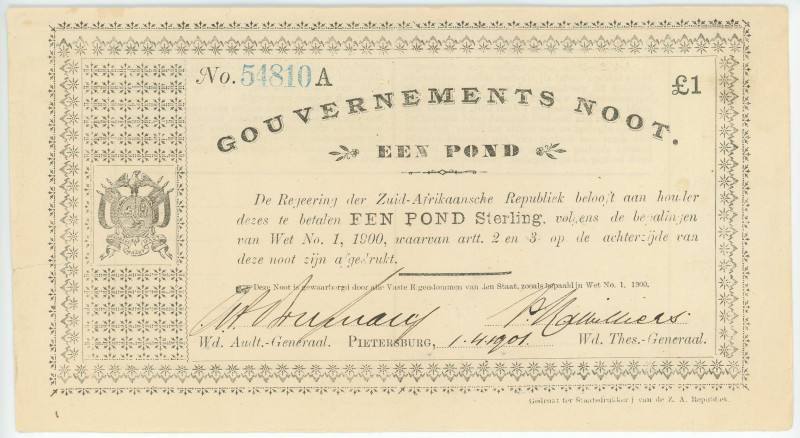 No. 54810 A
£1
GOUVERNEMENTS NOOT.
EEN POND
De Regeering der Zuid-Afrikaansche Republiek belooft aan houder
dezes te betalen EEN POND Sterling, volgens de bepalingen
van Wet No. 1, 1900, waarvan artt. 2 en 3 op de achterzijde van
deze noot zijn afgedrukt.
Deze Noot is gewaarborgd door alle Vaste Eigendommen van den Staat, zooals bepaald in Wet No. 1, 1900.
Wd. Audt.-Generaal. PIETERSBURG, 1.4.1901. Wd. Thes.-Generaal.
Gedrukt ter Staatsdrukkerij van de Z. A. Republiek.